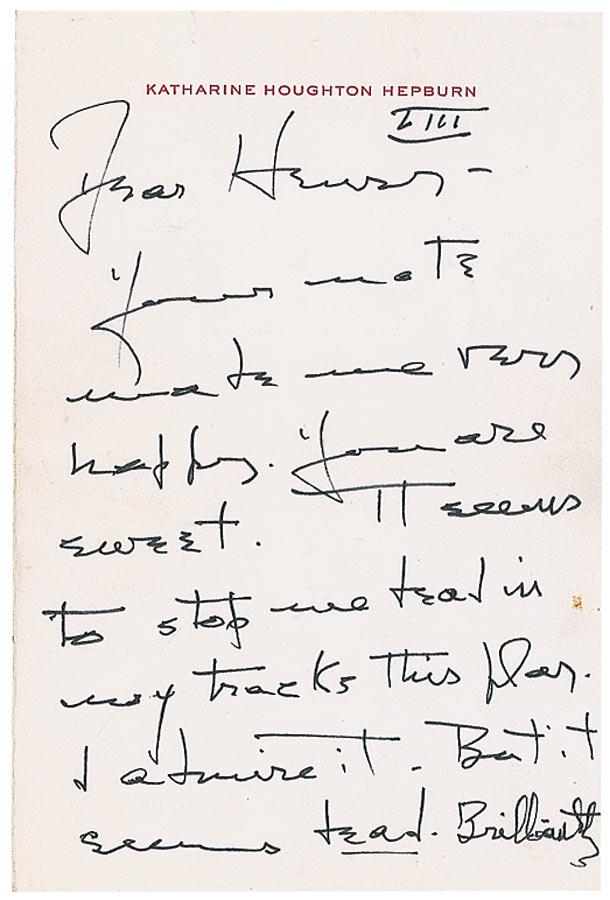 KATHARINE HOUGHTON HEPBURN
Dear Henry -
Your note
made me very
happy. You are
sweet. It seems
to stop me dead in
my tracks this play.
I admire it. But it
seems dead. Brilliantly